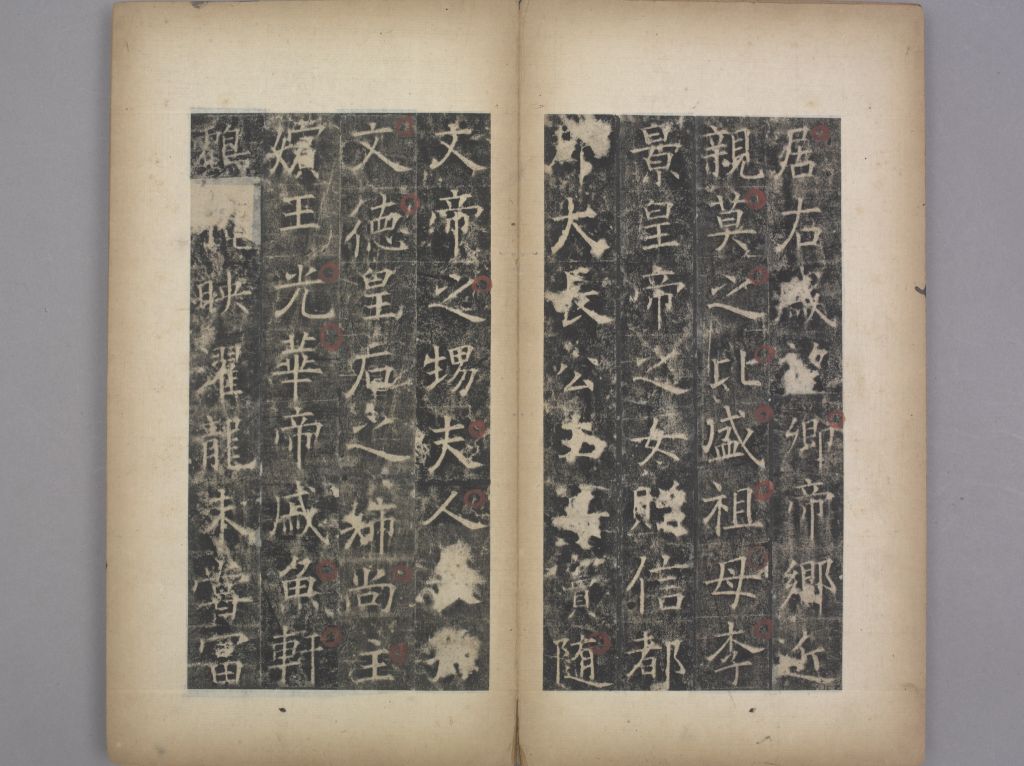 居右戚望卿帝鄉近
親莫之比盛祖母李
景皇帝之女贈信都
大長公主随
文帝之甥夫人
文徳皇后之姊尚主
嬪王光華帝戚魚軒
映濯龍未富